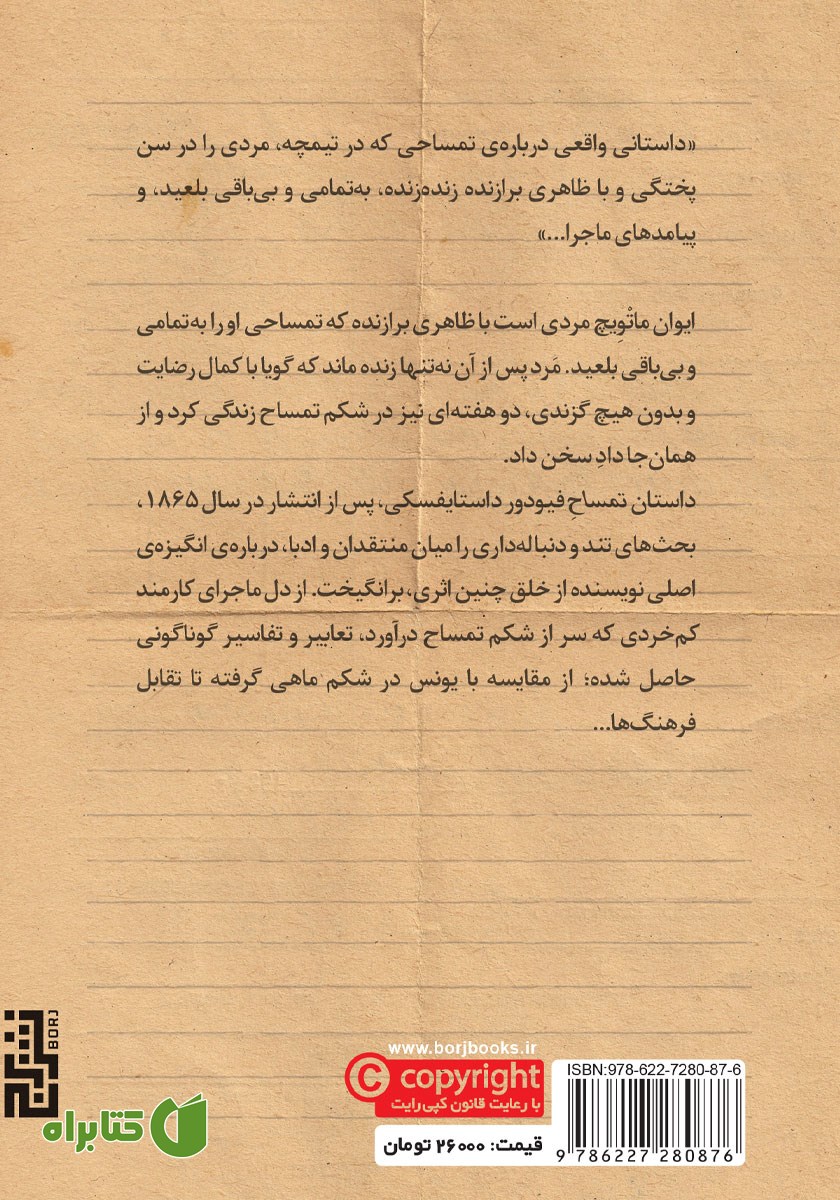 «داستانی واقعی درباره‌ی تمساحی که در تیمچه، مردی را در سن
پختگی و با ظاهری برازنده زنده‌زنده، به‌تمامی و بی‌باقی بلعید، و
پیامدهای ماجرا...»
ایوان ماتْوِیچ مردی است با ظاهری برازنده که تمساحی او را به‌تمامی
و بی‌باقی بلعید. مَرد پس از آن نه‌تنها زنده ماند که گویا با کمال رضایت
و بدون هیچ گزندی، دو هفته‌ای نیز در شکم تمساح زندگی کرد و از
همان‌جا دادِ سخن داد.
داستان تمساحِ فیودور داستایفسکی، پس از انتشار در سال ۱۸۶۵،
بحث‌های تند و دنباله‌داری را میان منتقدان و ادبا، درباره‌ی انگیزه‌ی
اصلی نویسنده از خلق چنین اثری، برانگیخت. از دل ماجرای کارمند
کم‌خردی که سر از شکم تمساح درآورد، تعابیر و تفاسیر گوناگونی
حاصل شده؛ از مقایسه با یونس در شکم ماهی گرفته تا تقابل
فرهنگ‌ها...
برج
BORJ
کتابراه
www.borjbooks.ir
© copyright
با رعایت قانون کپی‌رایت
قیمت: ۲۶۰۰۰ تومان
ISBN:978-622-7280-87-6
9 786227 280876